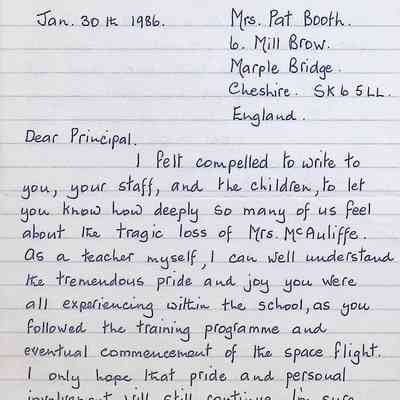 Jan. 30th 1986. Mrs. Pat Booth.
6. Mill Brow.
Marple Bridge.
Cheshire. SK6 5LL.
England.
Dear Principal.
I felt compelled to write to
you, your staff, and the children, to let
you know how deeply so many of us feel
about the tragic loss of Mrs. McAuliffe.
As a teacher myself, I can well understand
the tremendous pride and joy you were
all experiencing within the school, as you
followed the training programme and
eventual commencement of the space flight.
I only hope that pride and personal
involvement will still continue. I'm sure